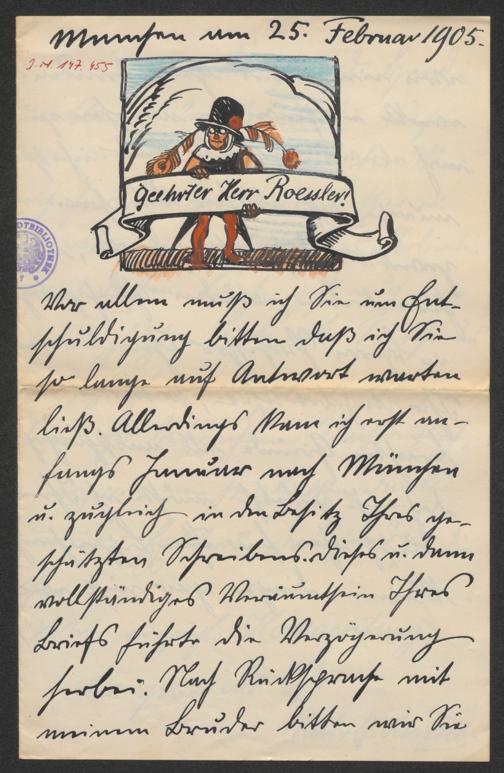 München am 25. Februar 1905.
I.N. 147.455
Geehrter Herr Roessler!
Vor allem muß ich Sie um Ent-
schuldigung bitten daß ich Sie
so lange auf Antwort warten
ließ. Allerdings kam ich erst an-
fangs Januar nach München
u. zugleich in den Besitz Ihres ge-
schätzten Schreibens. Dieses u. dann
vollständiges Verräumtsein Ihres
Briefs führte die Verzögerung
herbei. Nach Rücksprache mit
meinem Bruder bitten wir Sie